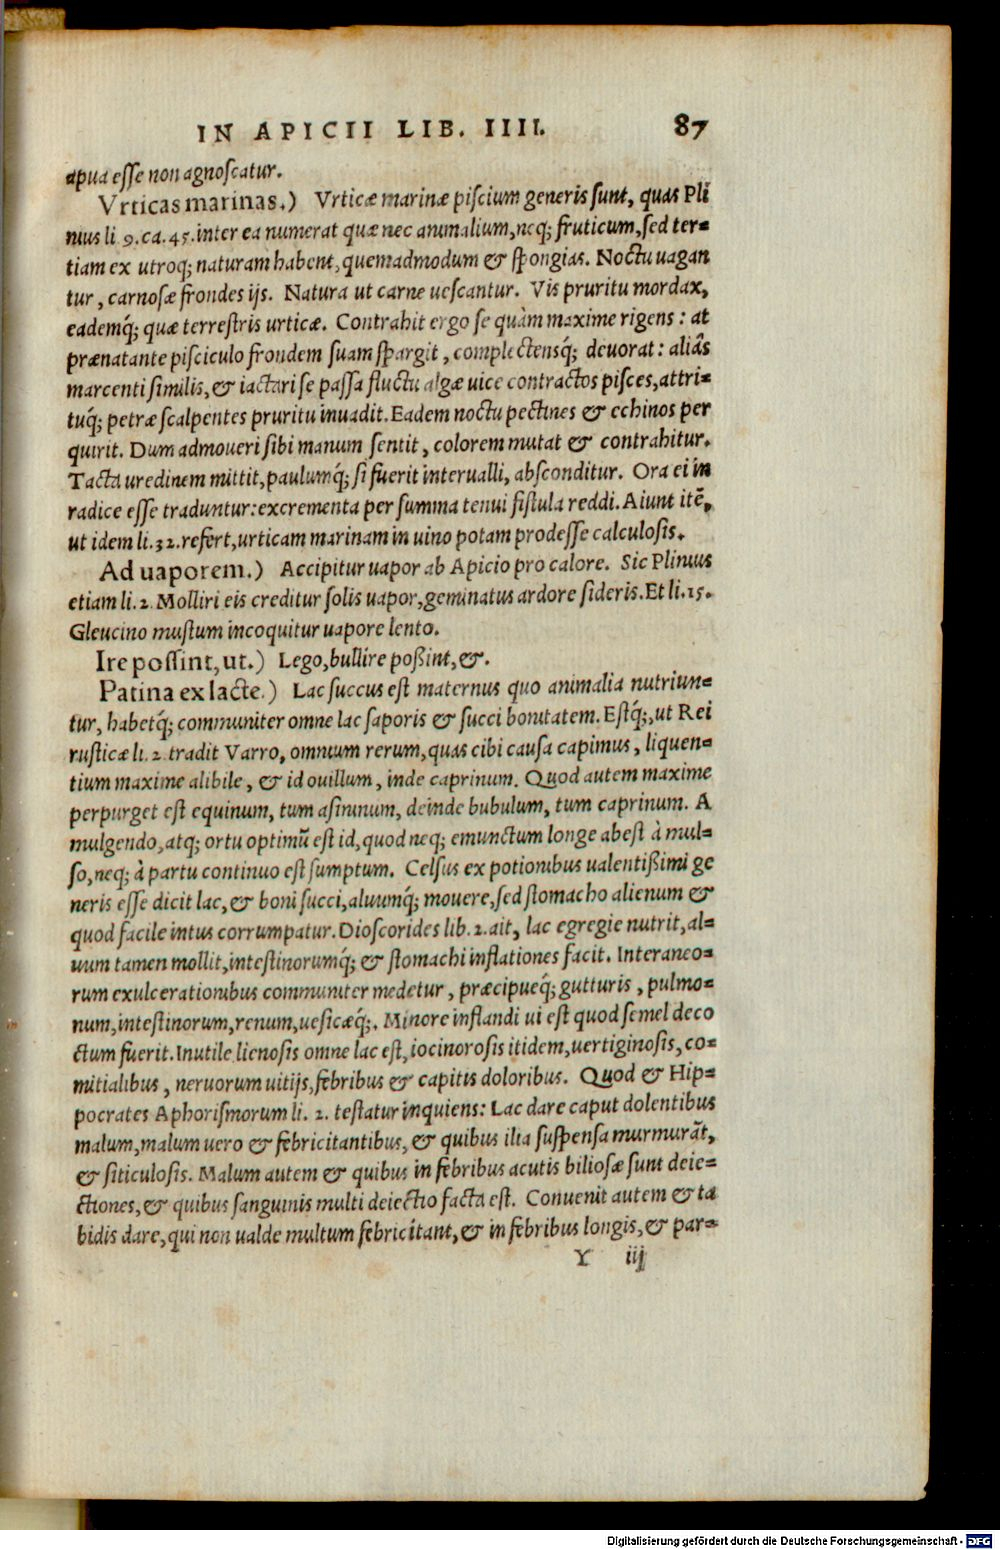 IN APICII LIB. IIII. 87
apua esse non agnoscatur.
Vrticas marinas.) Vrticæ marinæ piscium generis sunt, quas Pli
nius li 9. ca. 45. inter ea numerat quæ nec animalium, neq; fruticum, sed ter-
tiam ex utroq; naturam habent, quemadmodum & spongias. Noctu uagan
tur, carnosæ frondes ijs. Natura ut carne uescantur. Vis pruritu mordax,
eademq́; quæ terrestris urticæ. Contrahit ergo se quàm maxime rigens: at
prænatante pisciculo frondem suam spargit, complectensq́; deuorat: aliâs
marcenti similis, & iactari se passa fluctu algæ uice contractos pisces, attri-
tuq́; petræ scalpentes pruritu inuadit. Eadem noctu pectines & echinos per
quirit. Dum admoueri sibi manum sentit, colorem mutat & contrahitur.
Tacta uredinem mittit, paulumq́; si fuerit interualli, absconditur. Ora ei in
radice esse traduntur: excrementa per summa tenui fistula reddi. Aiunt itẽ,
ut idem li. 32. refert, urticam marinam in uino potam prodesse calculosis.
Ad uaporem.) Accipitur uapor ab Apicio pro calore. Sic Plinius
etiam li. 2. Molliri eis creditur solis uapor, geminatus ardore sideris. Et li. 15.
Gleucino mustum incoquitur uapore lento.
Ire possint, ut.) Lego, bullire poßint, &.
Patina ex lacte.) Lac succus est maternus quo animalia nutriun-
tur, habetq́; communiter omne lac saporis & succi bonitatem. Estq́;, ut Rei
rusticæ li. 2. tradit Varro, omnium rerum, quas cibi causa capimus, liquen-
tium maxime alibile, & id ouillum, inde caprinum. Quod autem maxime
perpurget est equinum, tum asininum, deinde bubulum, tum caprinum. A
mulgendo, atq; ortu optimũ est id, quod neq; emunctum longe abest à mul-
so, neq; à partu continuo est sumptum. Celsus ex potionibus ualentißimi ge
neris esse dicit lac, & boni succi, aluumq́; mouere, sed stomacho alienum &
quod facile intus corrumpatur. Dioscorides lib. 2. ait, lac egregie nutrit, al-
uum tamen mollit, intestinorumq́; & stomachi inflationes facit. Interaneo-
rum exulcerationibus communiter medetur, præcipueq́; gutturis, pulmo-
num, intestinorum, renum, uesicæq́;. Minore inflandi ui est quod semel deco
ctum fuerit. Inutile lienosis omne lac est, iocinorosis itidem, uertiginosis, co-
mitialibus, neruorum uitijs, febribus & capitis doloribus. Quod & Hip-
pocrates Aphorismorum li. 2. testatur inquiens: Lac dare caput dolentibus
malum, malum uero & febricitantibus, & quibus ilia suspensa murmurãt,
& siticulosis. Malum autem & quibus in febribus acutis biliosæ sunt deie-
ctiones, & quibus sanguinis multi deiectio facta est. Conuenit autem & ta
bidis dare, qui non ualde multum febricitant, & in febribus longis, & par-
Y iij
Digitalisierung gefördert durch die Deutsche Forschungsgemeinschaft - DFG